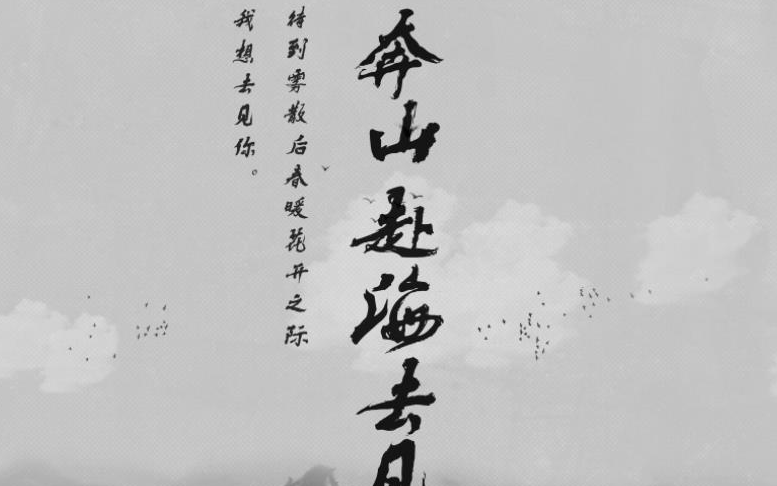 奔山赴海去见
待到雾散后春暖花开之际
我想去见你。